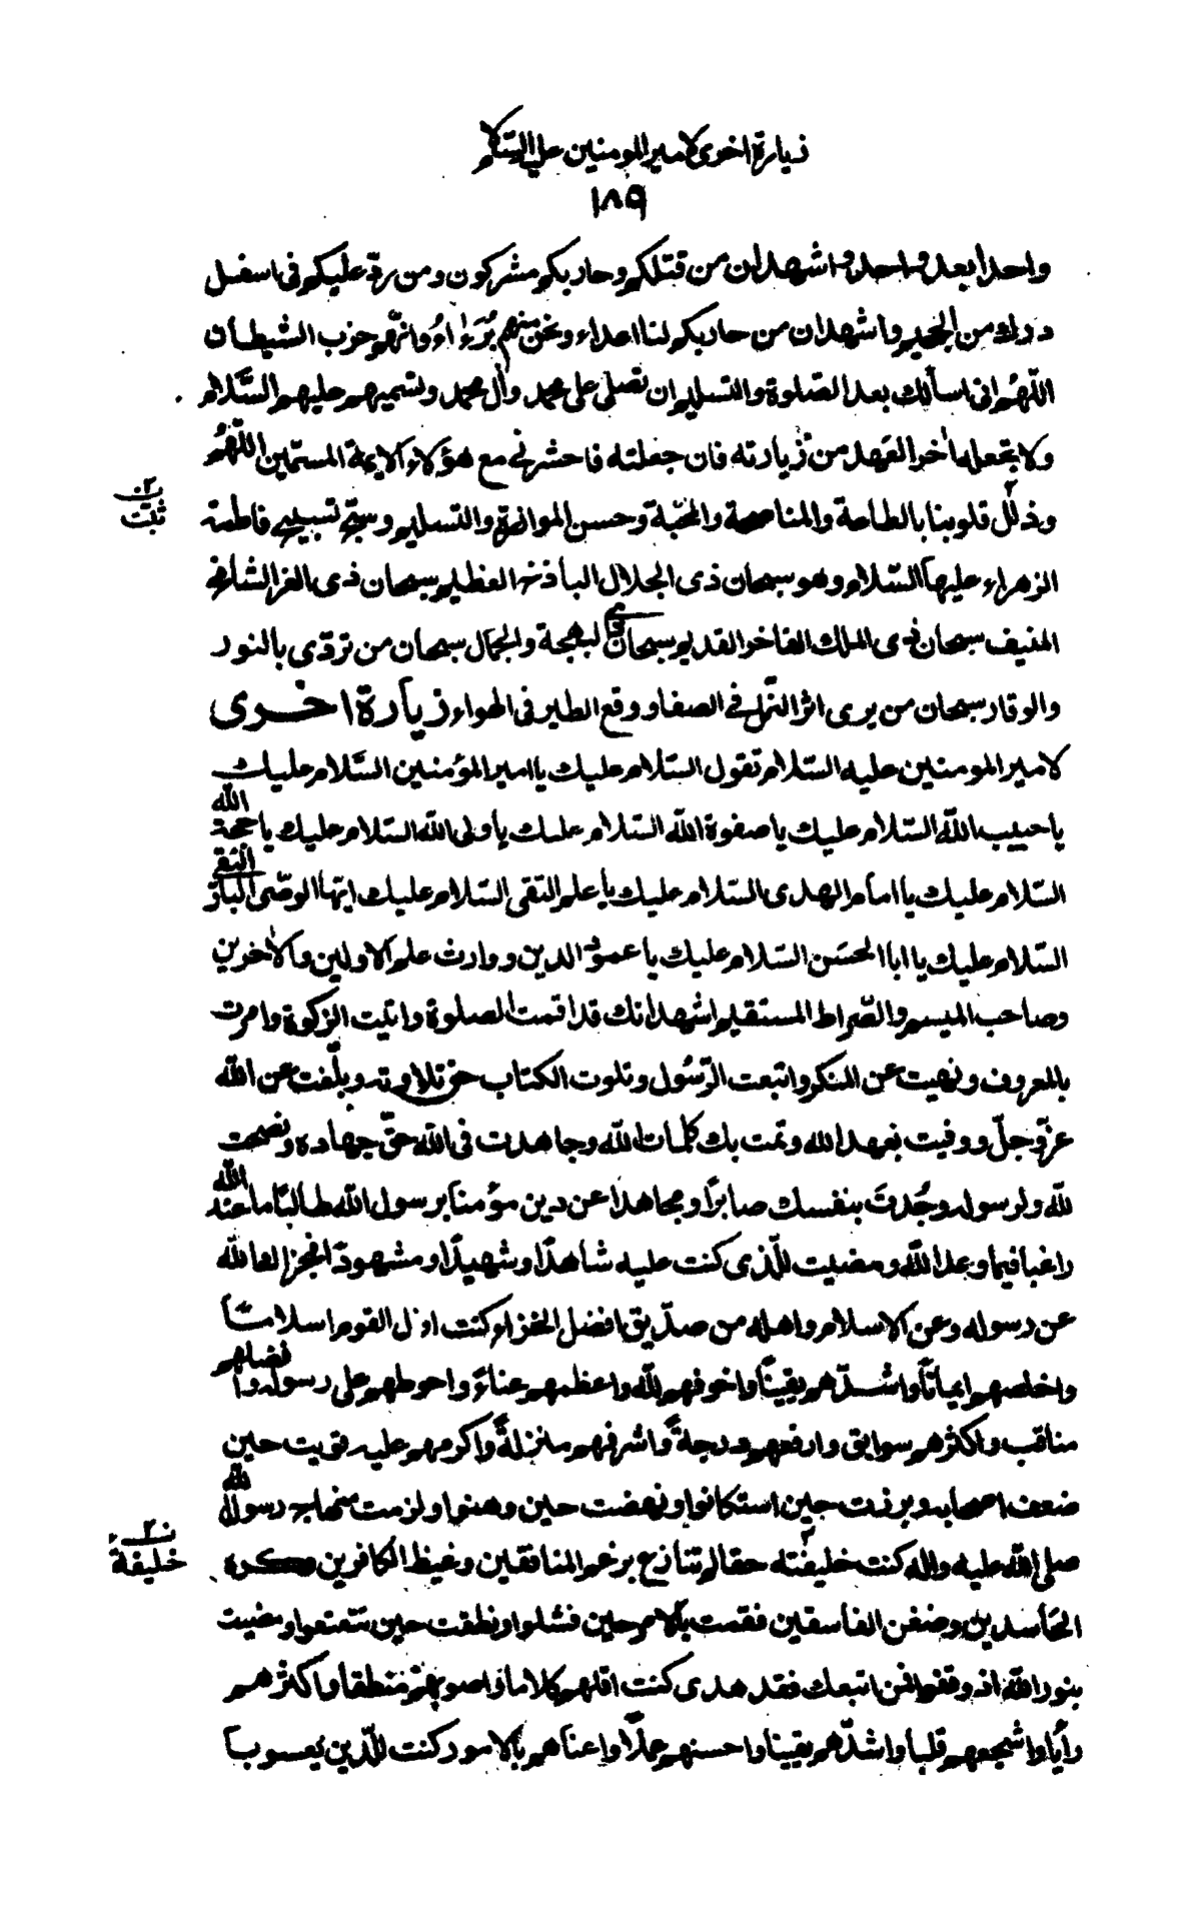 زيارة اخرى لامير المومنين عليه السلام
١٨٩
واحدا بعد واحد واشهد ان من قتلكم وحاربكم مشركون ومن ردّ عليكم فى اسفل
درك من الجحيم واشهد ان من حاربكم لنا اعداء ونحن منهم بُرَءاءُ وانّهم حزب الشيطان
اللّهُم انى اسألك بعد الصّلوة والتسليم ان تصلى على محمد وآل محمد وتسميهم عليهم السَّلام
ولا تجعله اخر العَهد من زيارته فان جعلته فاحشرنى مع هؤلاء الايمة المسمّين اللّهُم
ن٢
ثبّت
وذلّل قلوبنا بالطاعة والمناصحة والمحبّة وحسن الموازرة والتسليم وسبّح تسبيح فاطمة
الزهراء عليها السّلام وهو سبحان ذى الجلال الباذخ العظيم سبحان ذى العز الشامخ
المنيف سبحان ذى الملك الفاخر القديم سبحان ذى البهجة والجمال سبحان من تردّى بالنور
والوقار سبحان من يرى اثر النّمل فى الصفا ووقع الطير فى الهواء زيارة اخرى
لامير المومنين عليه السّلام تقول السّلام عليك يا امير المؤمنين السَّلام عليك
يا حبيب الله السّلام عليك يا صفوة الله السّلام عليك يا ولى الله السّلام عليك يا حجّة الله
السّلام عليك يا امام الهدى السّلام عليك يا علم التقى السّلام عليك ايّها الوصّى البارّ التقى
السّلام عليك يا ابا الحسَن السّلام عليك يا عمود الدين ووارث علم الاولين والآخرين
وصاحب الميسم والصّراط المستقيم اشهد انك قد اقمت الصلوة واتيت الزكوة وامرت
بالمعروف ونهيت عن المنكر واتبعت الرّسُول وتلوت الكتاب حق تلاوته وبلّغت عن الله
عزّ وجلّ ووفيت بعهد الله وتمت بك كلمات الله وجاهدت فى الله حقّ جهاده ونصحت
لله ولرسوله وجُدتَ بنفسك صابرًا ومجاهدا عن دين الله مؤمنا برسول الله طالبًا ما عند الله
راغبا فيما وعد الله ومضيت للّذى كنت عليه شاهدًا وشهيدًا ومشهودًا فجزاك الله
عن رسوله وعن الاسلام واهله من صدّيق افضل الجزاء كنت اول القوم اسلامًا
واخلصهم ايمانًا واشدّهم يقينًا واخوفهم لله واعظمهم عناءً واحوطهم على رسوله وافضلهم
مناقب واكثرهم سوابق وارفعهم درجةً واشرفهم منزلةً واكرمهم عليه قويت حين
ضعف اصحابه وبرزت حين استكانوا ونهضت حين وهنوا ولزمت منهاج رسول الله
ن٢
خليفة
صلى الله عليه واله كنت خليفته حقا لم تنازع برغم المنافقين وغيظ الكافرين وكره
الحَاسدين وضغن الفاسقين فقمت بالامر حين فشلوا ونطقت حين تتعتعوا ومضيت
بنور الله اذ وقفوا فمن اتبعك فقد هدى كنت اقلهم كلاما واصوبهم منطقا واكثرهم
رأيًا واشجعهم قلبا واشدّهم يقينا واحسنهم عملًا واعناهم بالامور كنت للدّين يعسوبا